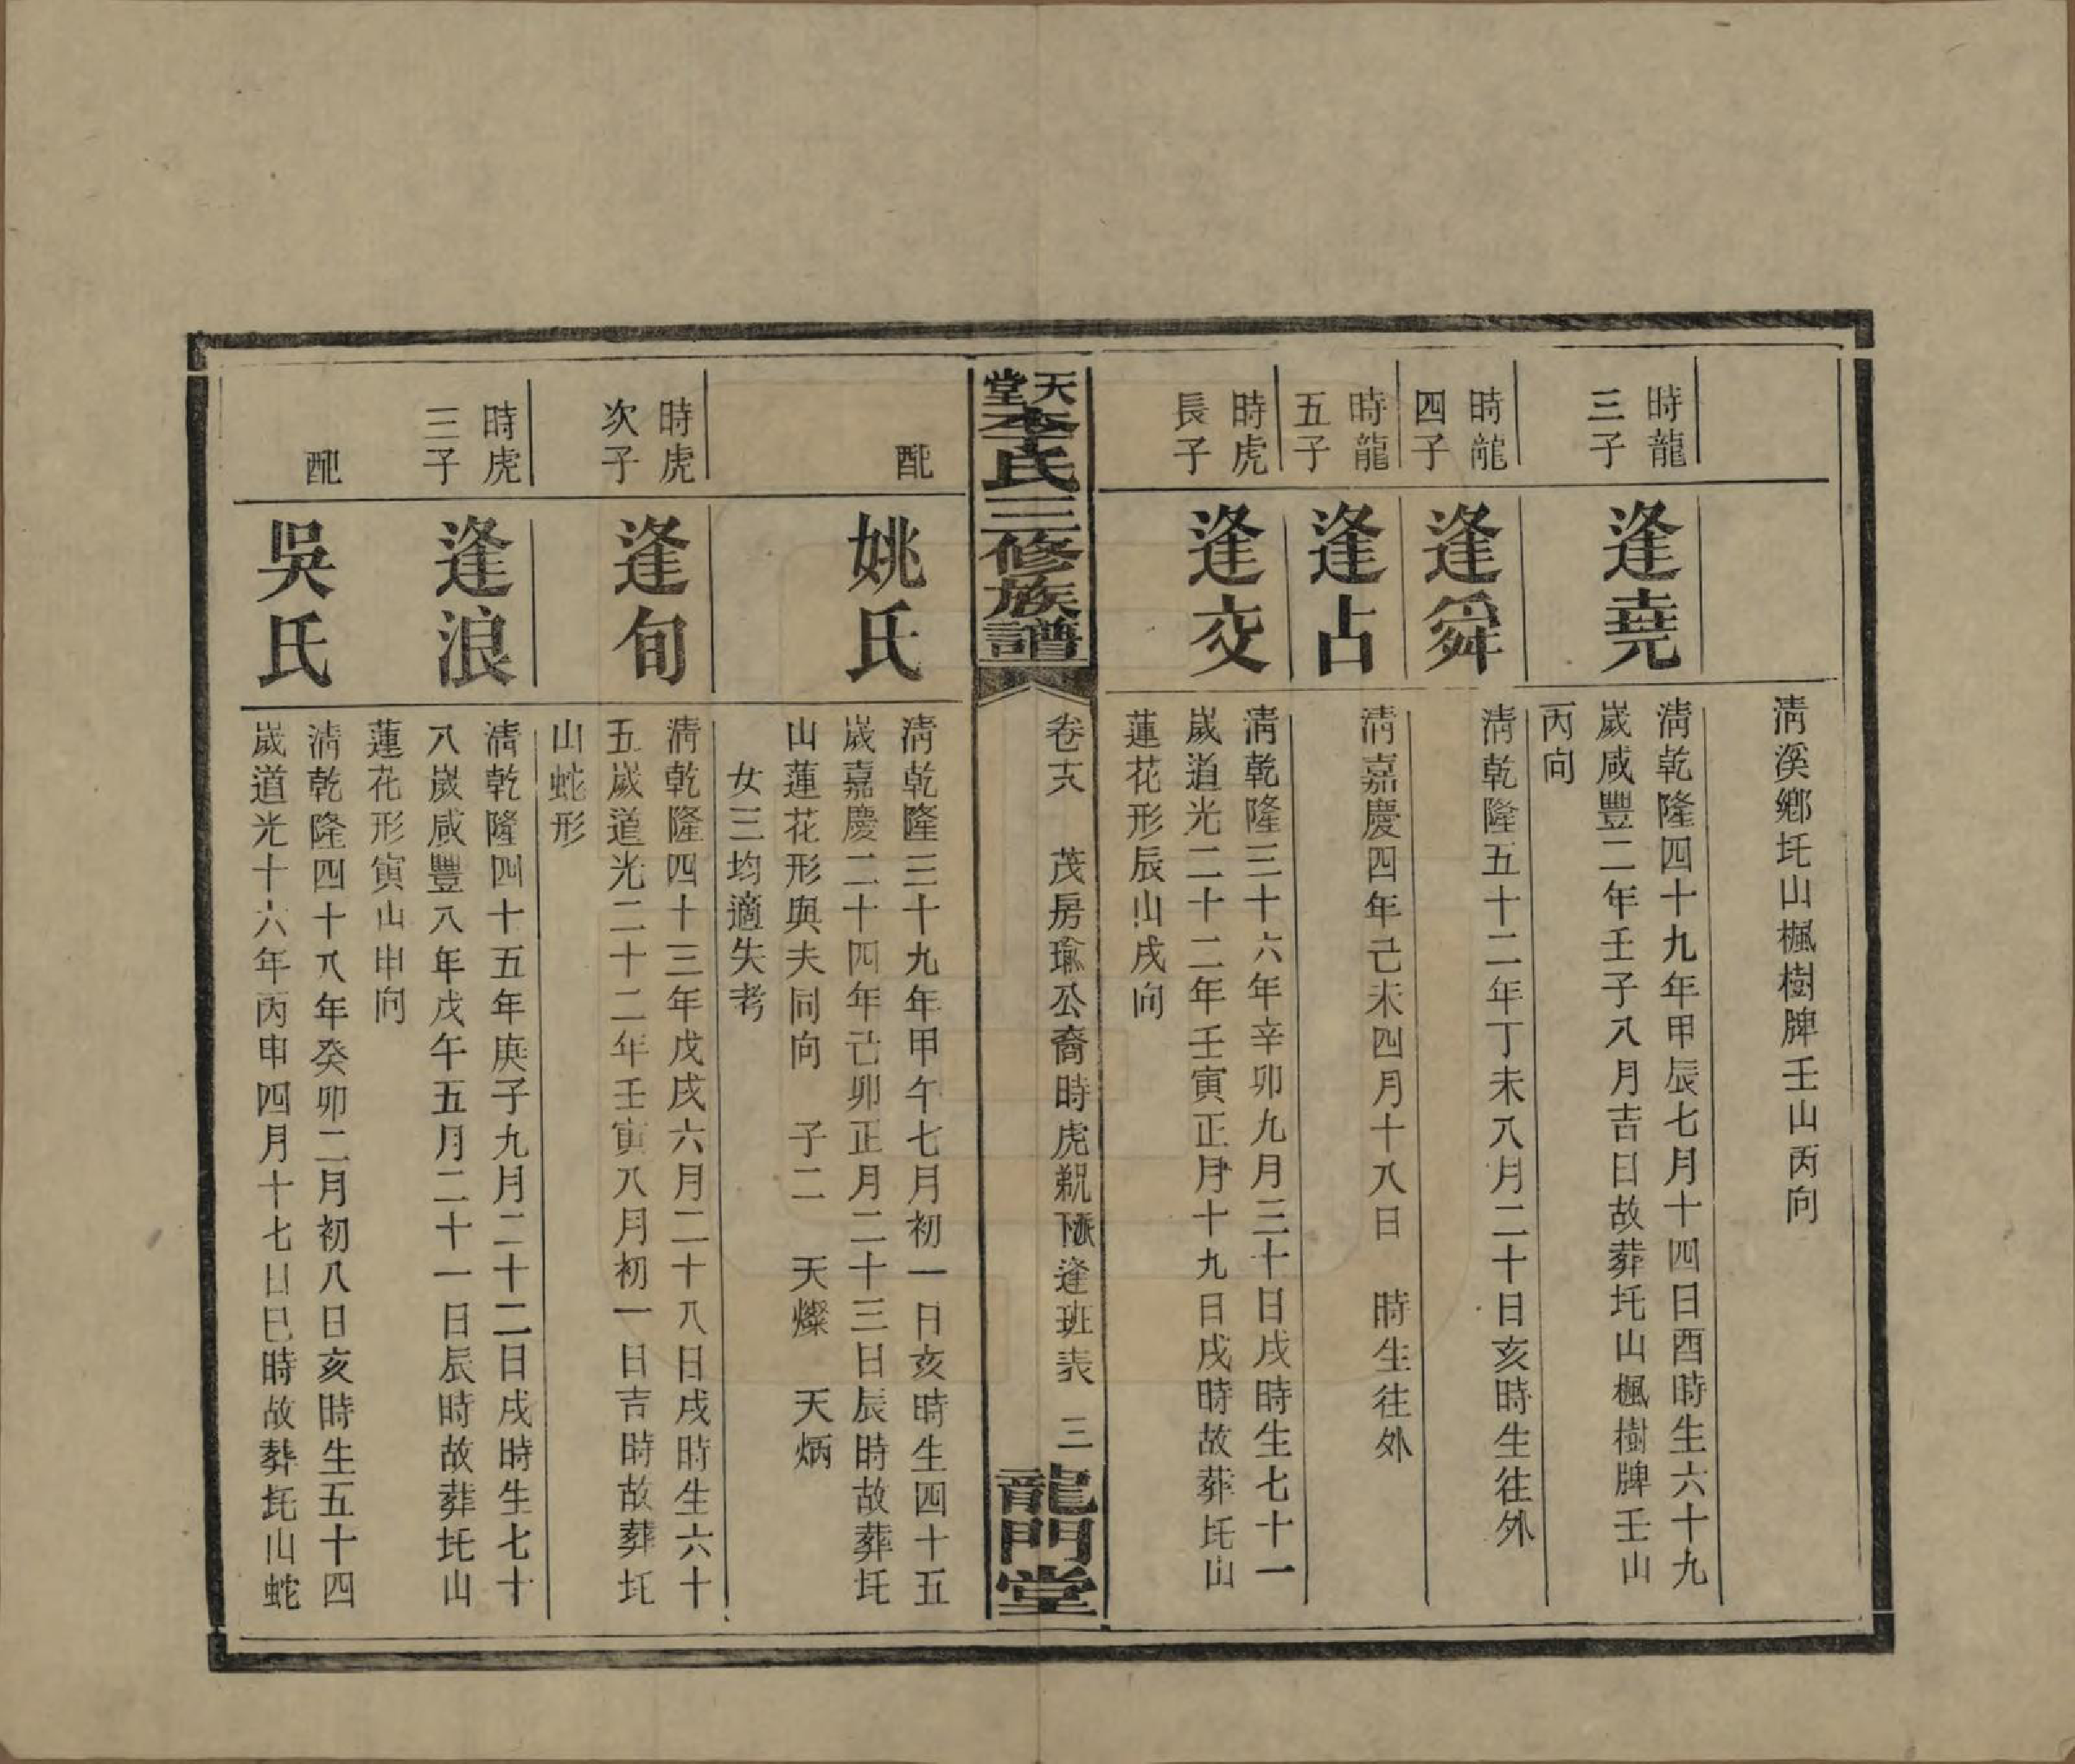 清溪鄉圫山楓樹牌壬山丙向
時龍
三子
逢堯
清乾隆四十九年甲辰七月十四日酉時生六十九
歲咸豐二年壬子八月吉日故葬圫山楓樹牌壬山
丙向
時龍
四子
逢舜
清乾隆五十二年丁未八月二十日亥時生往外
時龍
五子
逢占
清嘉慶四年己未四月十八日　時生往外
時虎
長子
逢交
清乾隆三十六年辛卯九月三十日戌時生七十一
歲道光二十二年壬寅正月十九日戌時故葬圫山
蓮花形辰山戌向
天堂李氏三修族譜
卷十八　茂房瑜公裔時虎覜逢班表　三
龍門堂
配
姚氏
清乾隆三十九年甲午七月初一日亥時生四十五
歲嘉慶二十四年己卯正月二十三日辰時故葬圫
山蓮花形與夫同向　子二　天燦　天炳
女三均適失考
時虎
次子
逢旬
清乾隆四十三年戊戌六月二十八日戌時生六十
五歲道光二十二年壬寅八月初一日吉時故葬圫
山蛇形
時虎
三子
逢浪
清乾隆四十五年庚子九月二十二日戌時生七十
八歲咸豐八年戊午五月二十一日辰時故葬圫山
蓮花形寅山申向
配
吳氏
清乾隆四十八年癸卯二月初八日亥時生五十四
歲道光十六年丙申四月十七日巳時故葬圫山蛇